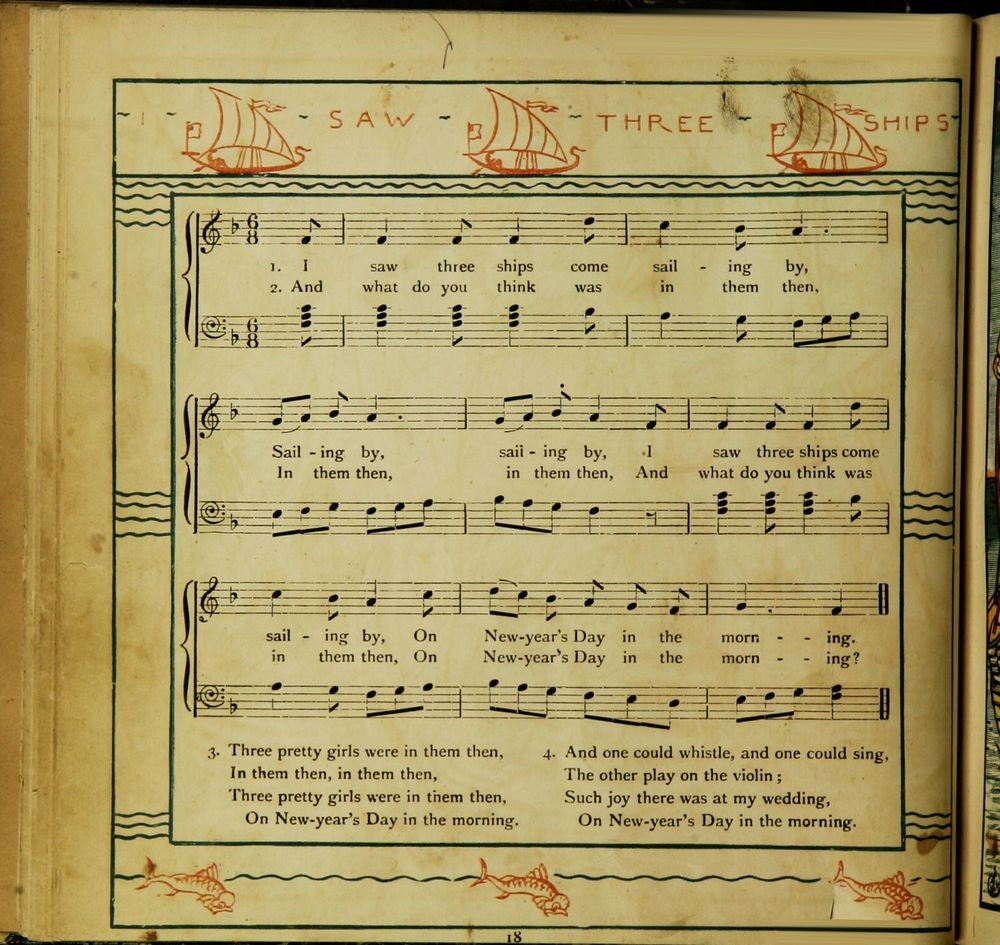 I SAW THREE SHIPS
1. I saw three ships come sail - ing by,
2. And what do you think was in them then,
Sail - ing by, sail - ing by, I saw three ships come
In them then, in them then, And what do you think was
sail - ing by, On New-year's Day in the morn - - ing.
in them then, On New-year's Day in the morn - - ing?
3. Three pretty girls were in them then,
In them then, in them then,
Three pretty girls were in them then,
On New-year's Day in the morning.
4. And one could whistle, and one could sing,
The other play on the violin ;
Such joy there was at my wedding,
On New-year's Day in the morning.
18